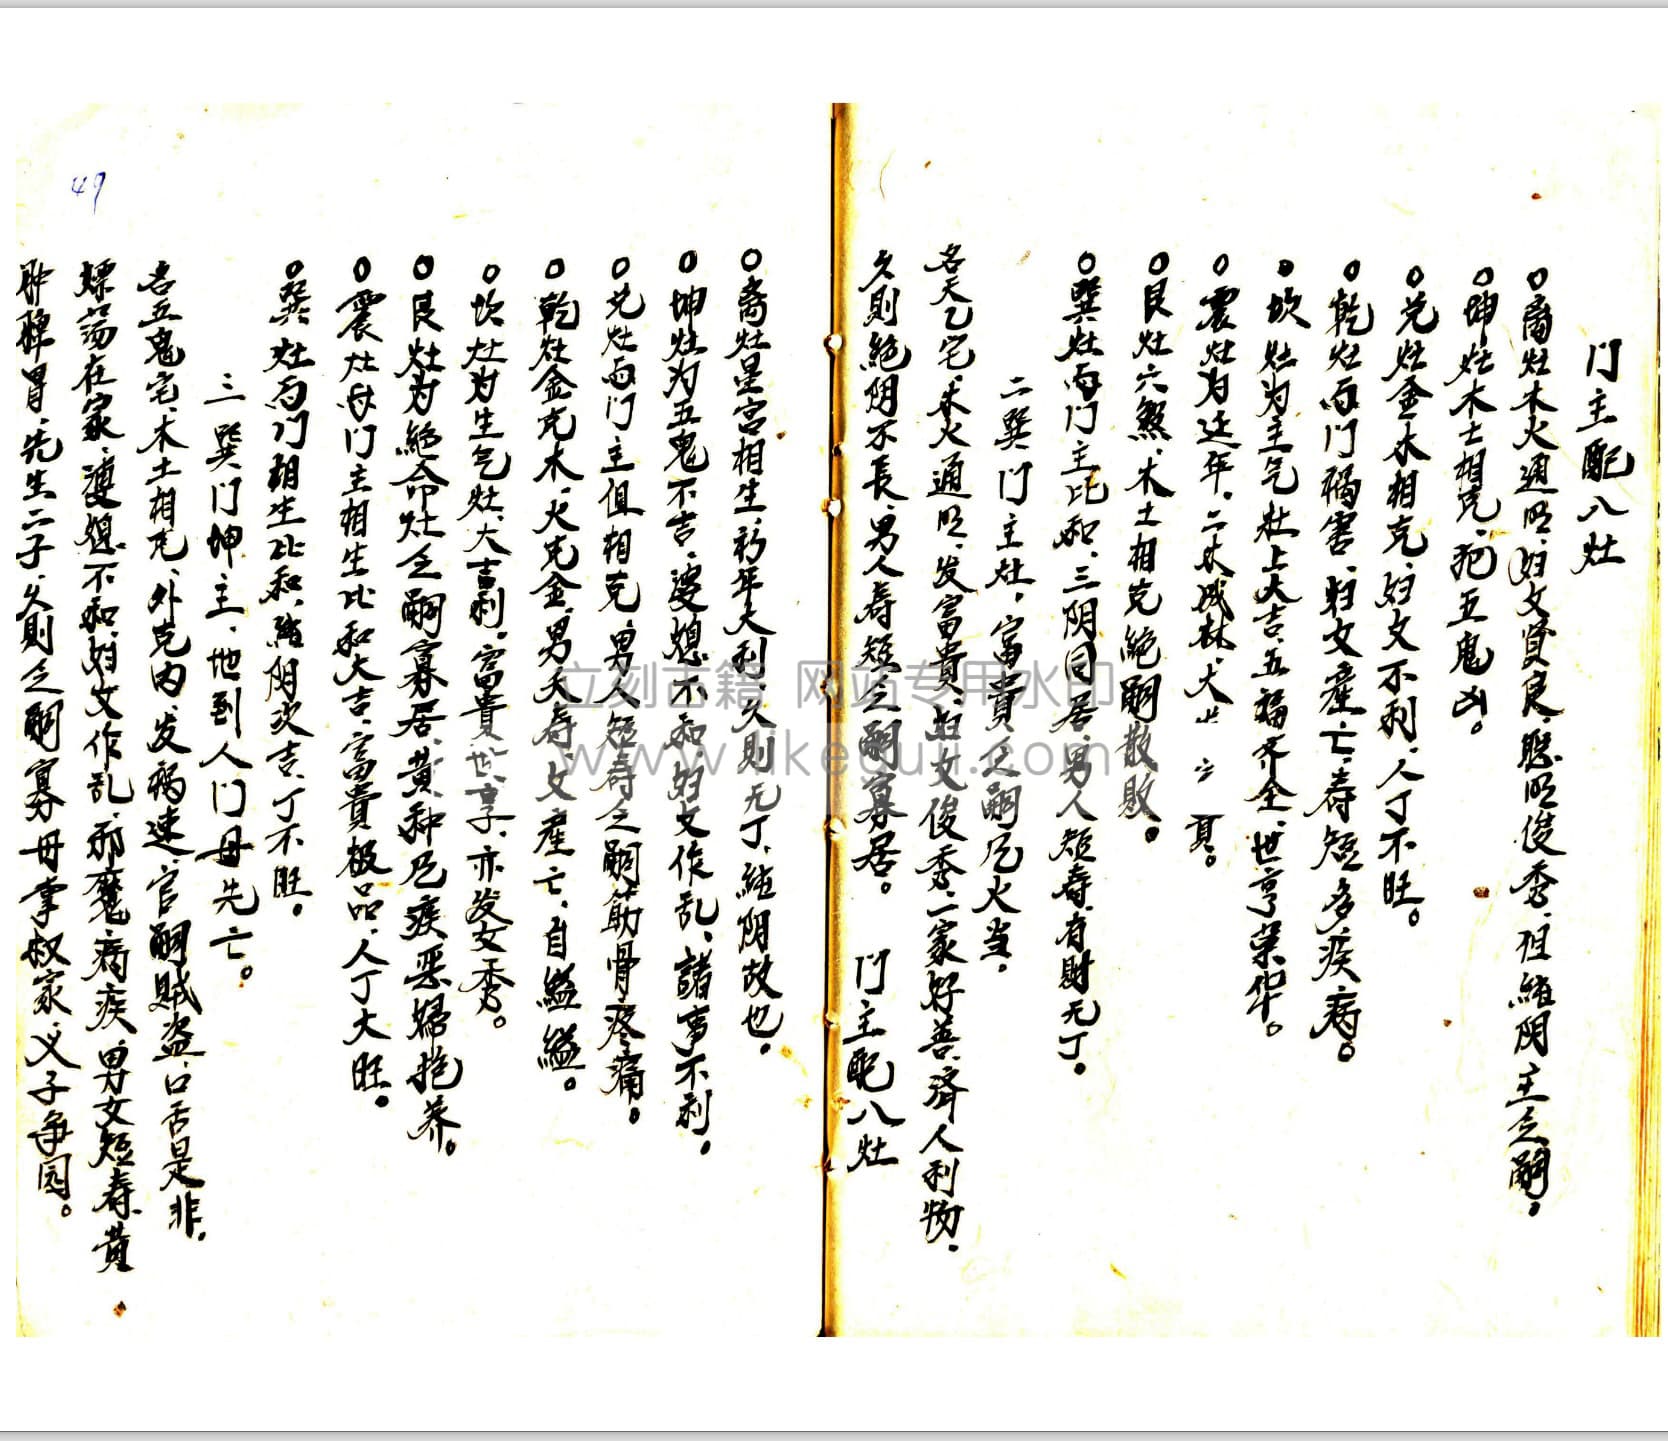 门主配八灶
○离灶木火通明、妇女贤良、聪明俊秀、但纯阴主乏嗣。
○坤灶木土相克、犯五鬼凶。
○兑灶金木相克、妇女不利、人丁不旺。
○乾灶而门祸害、妇女產亡、寿短多疾病。
○坎灶为主气灶上大吉、五福齐全、世亨荣华。
○震灶为延年、二木成林、大
○艮灶六煞、木土相克絶嗣散败。
○巽灶而门主比和、三阴同居、男人短寿、有财无丁。
二巽门主灶，富貴乏嗣
名天乙宅、木火通明、发富貴、妇女俊秀、二家好善、济人利物、
久则絶阴不長、男人寿短乏嗣寡居。 门主配八灶
○离灶星宫相生、初年大利、久则无丁、純阴故也。
○坤灶为五鬼不吉、婆媳不和、妇女作乱、諸事不利。
○兑灶而门主俱相克、男人短寿乏嗣、筋骨疼痛。
○乾灶金克木、火克金、男夭寿、女產亡、自縊縊。
○坎灶为生气灶、大吉利、富貴世享、亦发女秀。
○艮灶为絶命灶乏嗣寡居、黄肿疾恶婦抱养。
○震灶母门主相生比和大吉、富貴极品、人丁大旺。
○巽灶而门相生比和、純阴次吉、丁不旺。
三 巽门坤主、地到人门母先亡。
名五鬼宅、木土相克、外克内、发病速、官嗣贼盗、口舌是非、
嫖荡在家、婆媳不和、妇女作乱、邪魔、病疾、男女短寿、黄
肿脾胃、先生二子、久则乏嗣寡母掌叔家、义子争园。
49
立刻古籍 网站专用水印
www.likeguji.com